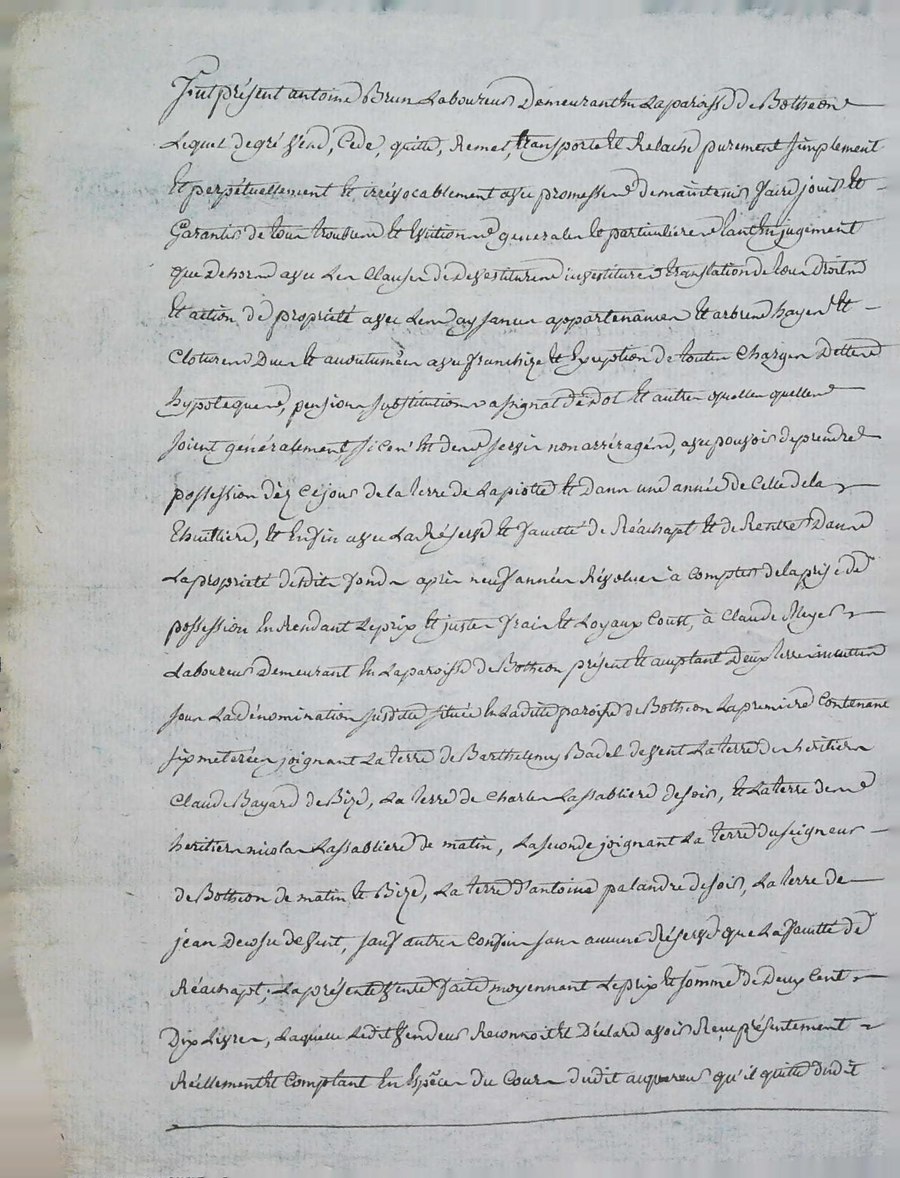 Fut présent antoine Brun Laboureur Demeurant En Laparoisse de Botheon
Lequel de gré Vend, Cede, quitte, Remet, transporte Et Relache purement simplement
Et perpétuellement Et irrévocablement avec promesses de maintenir faire jouir Et
Garantir de tour troubles Et Evitions generales Et particulieres tant En jugement
que dehors avec Les Clauses de devestitures investitures translation de tous droits
Et action de propriété avec Les aysances appartenances Et arbres hayes Et
Clotures Dues Et acoutumées avec franchize Et Exeption de toutes Charges Dettes
hypoteques, pensions substitutions assignat de Dot Et autres quelles quelles
soient généralement, si ce n'Est de servis non arréragés, avec pouvoir de prendre
possession dès Cejour de la terre de Lapiotte Et Dans une année de Celle de la
Thuilliere, Et Enfin avec La Réserve Et faculté de Réachapt Et de Rentrer Dans
La proprieté desdits fonds après neuf années Révolues à Compter de la prise de
possession En Rendant Leprix Et justes frais Et Loyaux Couts, à Claude
Laboureur Demeurant En Laparoisse de Botheon présent Et aceptant Deux terres situées
sous La dénomination susditte située En Laditte paroisse de Botheon La premiere Contenant
six meterées joignant La terre de Barthelemy Badel de Vent La terre des heritiers
Claude Bayard de Bize, La terre de Charles Lassabliere de soir, Et La terre des
heritiers nicolas Lassabliere de matin, La seconde joignant La terre du seigneur
de Botheon de matin Et Bize, La terre d'antoine palandre de soir, La terre de
jean Decosu de Vent, sauf autres Confins sans aucune Réserve que La faculté de
Réachapt; La présente Vente faite moyennant Leprix Et somme de Deux Cent
Dix Livres, Laquelle Ledit Vendeur Reconnoit Et Déclare avoir Reçu présentement
Réellement Et Comptant En Espèces du Cours dudit aquereur qu'il quitte dudit